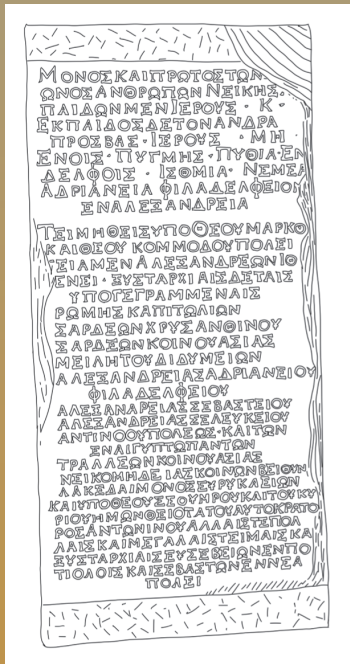 ΜΟΝΟΣΚΑΙΠΡΩΤΟΣΤΩΝ
ΩΝΟΣΑΝΘΡΩΠΩΝΝΕΙΚΗΣ
ΠΑΙΔΩΝΜΕΝΙΕΡΟΥΣ · Κ ·
ΕΚΠΑΙΔΟΣΔΕΤΟΝΑΝΔΡΑ
ΠΡΟΣΒΑΣ · ΙΕΡΟΥΣ · ΜΗ
ΕΝΟΙΣ · ΠΥΓΜΗΣ · ΠΥΘΙΑ · ΕΝ
ΔΕΛΦΟΙΣ · ΙΣΘΜΙΑ · ΝΕΜΕΑ
ΑΔΡΙΑΝΕΙΑ ΦΙΛΑΔΕΛΦΕΙΟΝ
ΕΝΑΛΕΞΑΝΔΡΕΙΑ
ΤΕΙΜΗΘΕΙΣΥΠΟΘΕΟΥΜΑΡΚΟ
ΚΑΙΘΕΟΥ ΚΟΜΜΟΔΟΥΠΟΛΕΙ
ΤΕΙΑΜΕΝΑΛΕΞΑΝΔΡΕΩΝΙΘ
ΕΝΕΙ · ΞΥΣΤΑΡΧΙΑΙΣΔΕΤΑΙΣ
ΥΠΟΓΕΓΡΑΜΜΕΝΑΙΣ
ΡΩΜΗΣ ΚΑΠΙΤΩΛΙΩΝ
ΣΑΡΔΕΩΝΧΡΥΣΑΝΘΙΝΟΥ
ΣΑΡΔΕΩΝΚΟΙΝΟΥΑΣΙΑΣ
ΜΕΙΛΗΤΟΥΔΙΔΥΜΕΙΩΝ
ΑΛΕΞΑΝΔΡΕΙΑΣΑΔΡΙΑΝΕΙΟΥ
ΦΙΛΑΔΕΛΦΕΙΟΥ
ΑΛΕΞΑΝΔΡΕΙΑΣΣΕΒΑΣΤΕΙΟΥ
ΑΛΕΞΑΝΔΡΕΙΑΣΣΕΛΕΥΚΕΙΟΥ
ΑΝΤΙΝΟΟΥΠΟΛΕΩΣ · ΚΑΙΤΩΝ
ΕΝΑΙΓΥΠΤΩΠΑΝΤΩΝ
ΤΡΑΛΛΕΩΝΚΟΙΝΟΥΑΣΙΑΣ
ΝΕΙΚΟΜΗΔΕΙΑΣΚΟΙΝΟΥΒΕΙΘΥΝ
ΛΑΚΕΔΑΙΜΟΝΟΣΕΥΡΥΚΛΕΙΩΝ
ΚΑΙΥΠΟΘΕΟΥΣΕΟΥΗΡΟΥΚΑΙΤΟΥΚΥ
ΡΙΟΥΗΜΩΝΘΕΙΟΤΑΤΟΥΑΥΤΟΚΡΑΤΟ
ΡΟΣΑΝΤΩΝΙΝΟΥΑΛΛΑΙΣΤΕΠΟΛ
ΛΑΙΣΚΑΙΜΕΓΑΛΑΙΣΤΕΙΜΑΙΣΚΑ
ΞΥΣΤΑΡΧΙΑΙΣΕΥΣΕΒΕΙΩΝΕΝΠΟ
ΤΙΟΛΟΙΣΚΑΙΣΕΒΑΣΤΩΝΕΝΝΕΑ
ΠΟΛΕΙ